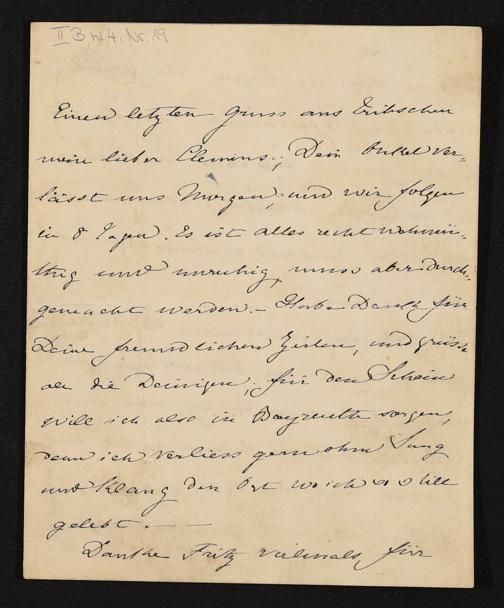 II B W 4, Nr. 19
Einen letzten Gruss aus Tribschen
mein lieber Clemens; Dein Onkel ver-
lässt uns Morgen, und wir folgen
in 8 Tagen. Es ist alles recht wehmü-
thig und unruhig, muss aber durch-
gemacht werden. – Habe Dank für
Deine freundlichen Zeilen, und grüsse
alle die Deinigen; für den Schein
will ich also in Bayreuth sorgen,
denn ich verliess gern ohne Sang
und Klang den Ort wo ich so still
gelebt. — —
Danke Fritz vielmals für